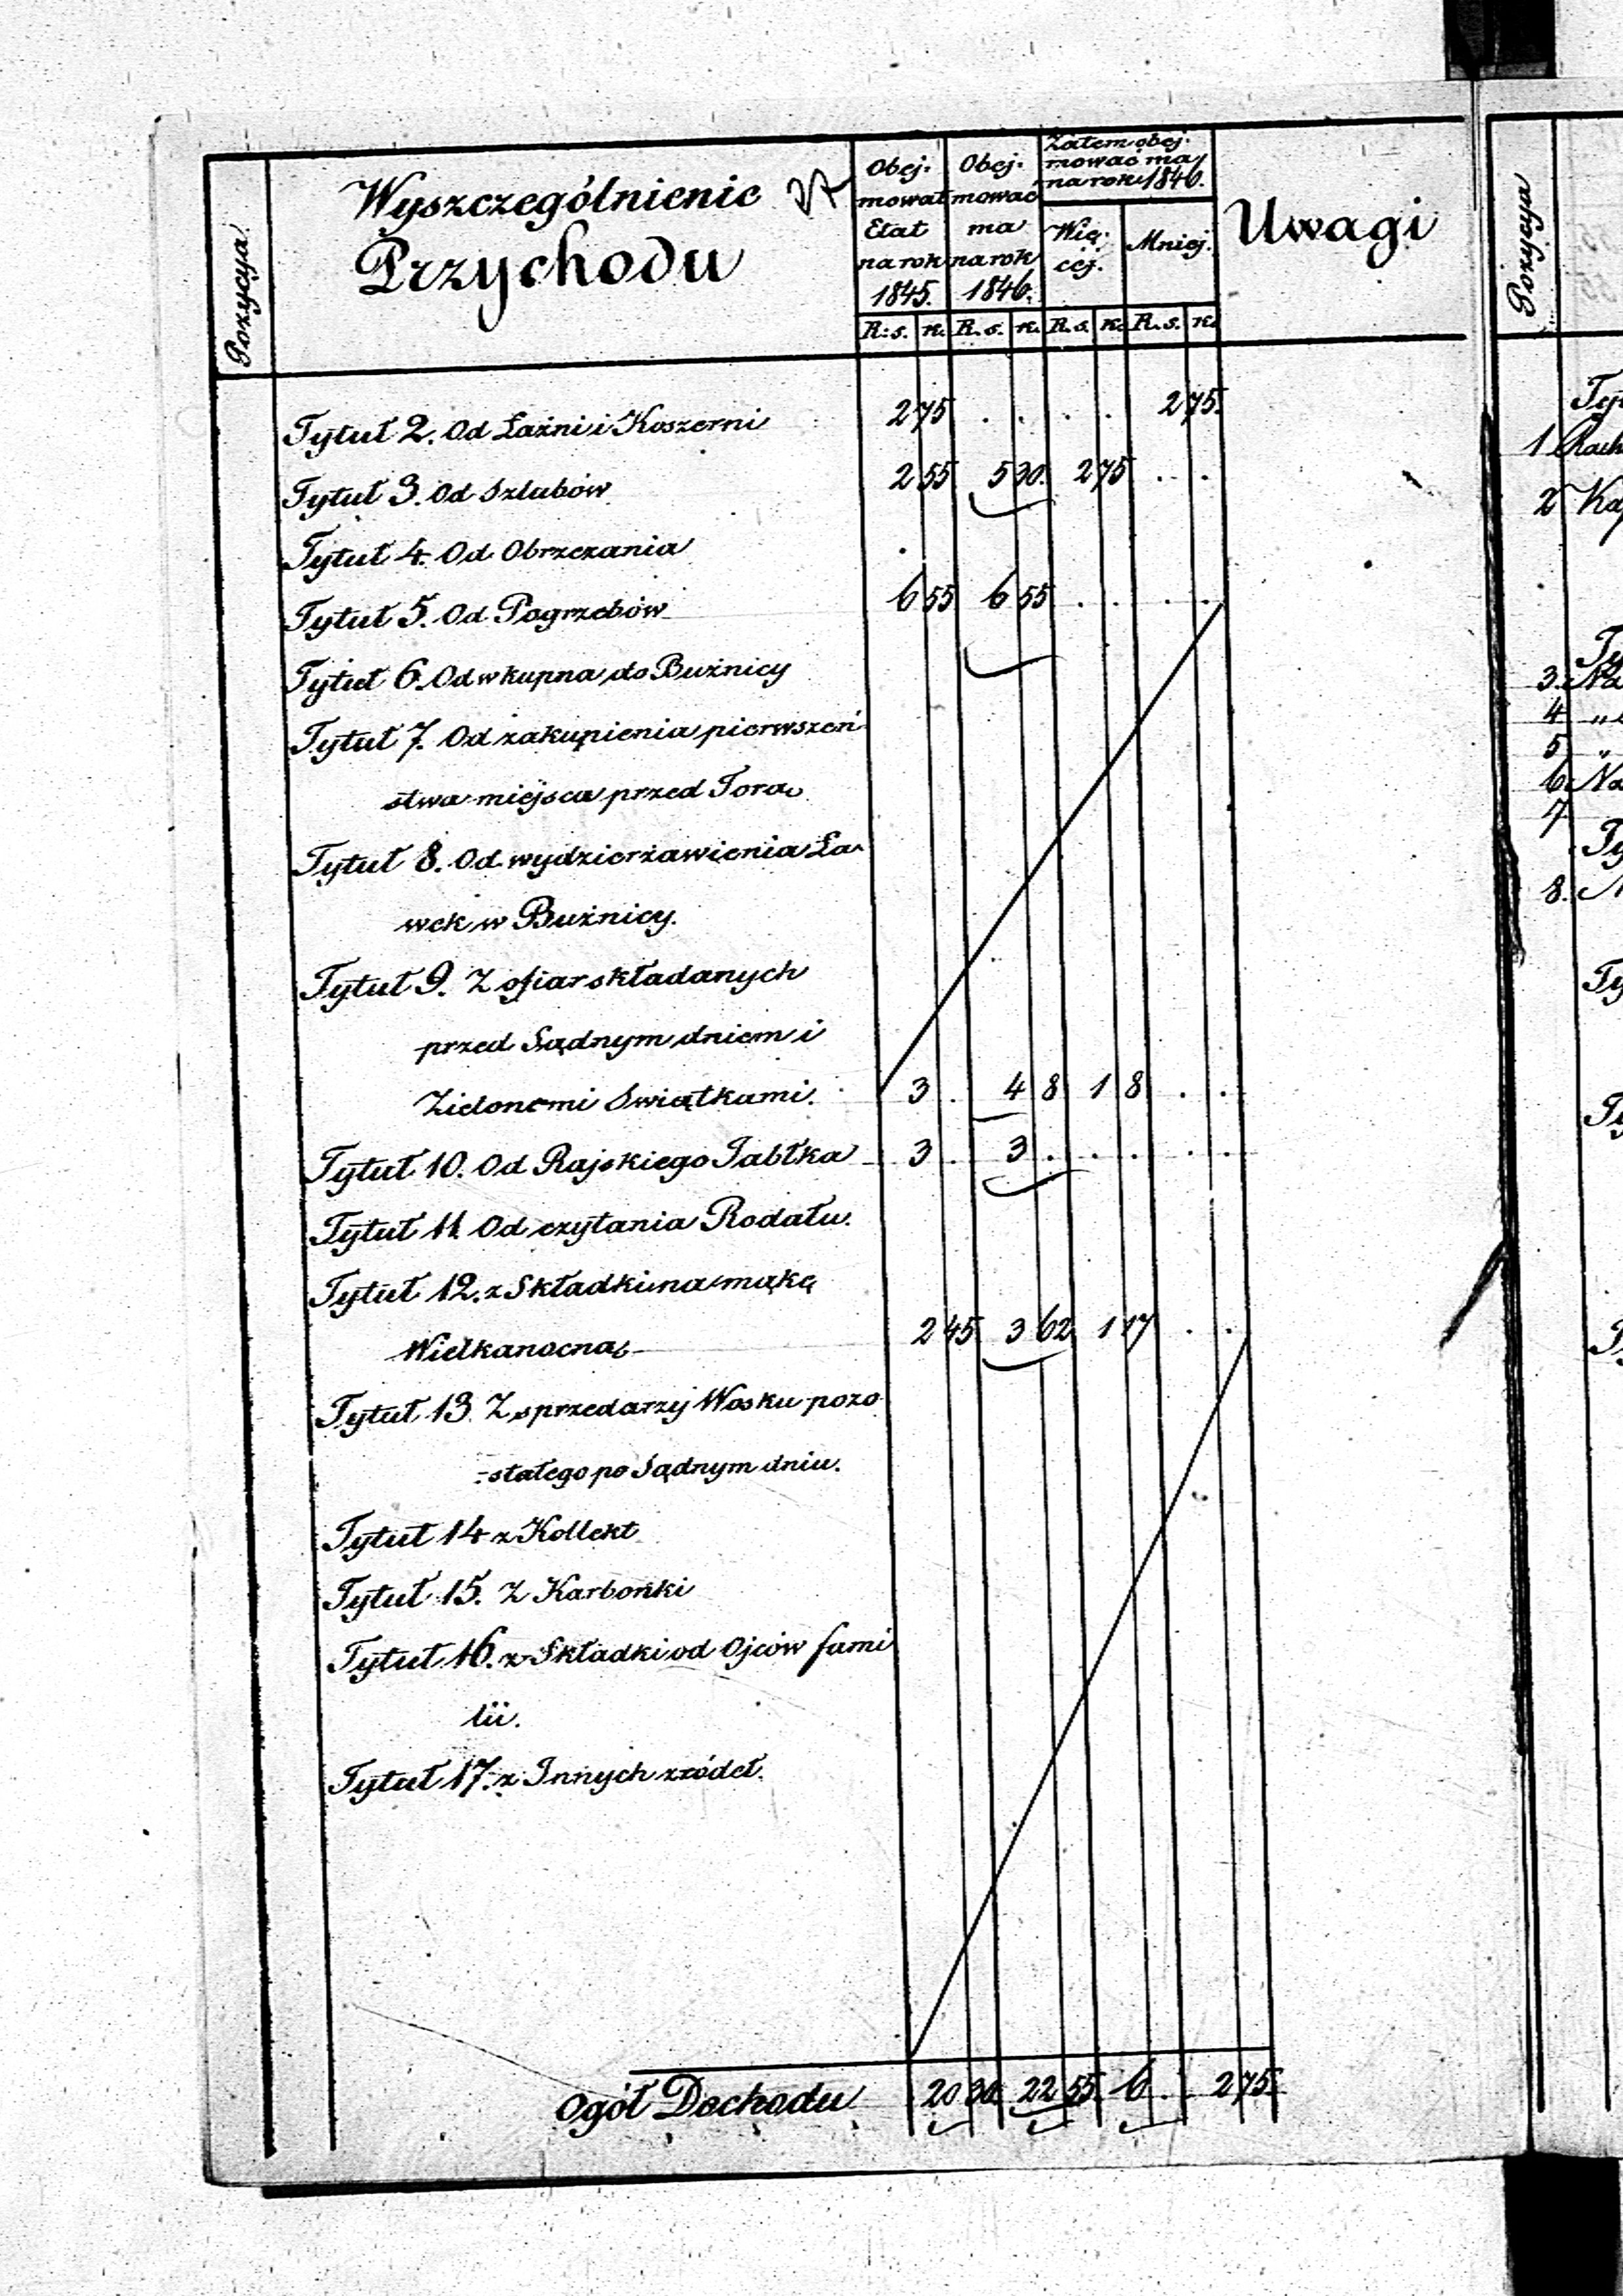 Pozycya
Wyszczególnienie
Przychodu
Obej-
mował
Etat
na rok
1845.
Obej-
mować
ma
na rok
1846.
Zatem obej-
mować ma
na rok 1846.
Wię-
cej.
Mniej.
Uwagi
R: s. k. R. s. k. R. s. k. R. s. k.
Tytuł 2. Od Łaźni i Koszerni 2 75 . . . . 2 75.
Tytuł 3. Od Szlubów 2 55 5 30. 2 75 . .
Tytuł 4. Od Obrzezania .
Tytuł 5. Od Pogrzebów 6 55 6 55 . . . .
Tytuł 6. Od wkupna do Bużnicy
Tytuł 7. Od zakupienia pierwszeń-
stwa miejsca przed Torą.
Tytuł 8. Od wydzierżawienia Ła-
wek w Bużnicy.
Tytuł 9. Z ofiar składanych
przed Sądnym dniem i
Zielonemi Swiątkami. 3 . 4 8 1 8 . .
Tytuł 10. Od Rajskiego Jabłka 3 . 3 . . . . .
Tytuł 11. Od czytania Rodału.
Tytuł 12. z Składki na mąkę
Wielkanocną 2 45 3 62 1 17 . .
Tytuł 13. Z sprzedarzy Wosku pozo-
-stałego po Sądnym dniu.
Tytuł 14 z Kollekt
Tytuł 15. Z Karbonki
Tytuł 16. z Składki od Ojców fami
lii.
Tytuł 17. z Innych zródeł.
Ogół Dochodu 20 30. 22 55. 6 . 2 75.
Pozycya
1
2
3.
4
5
6.
7
8.